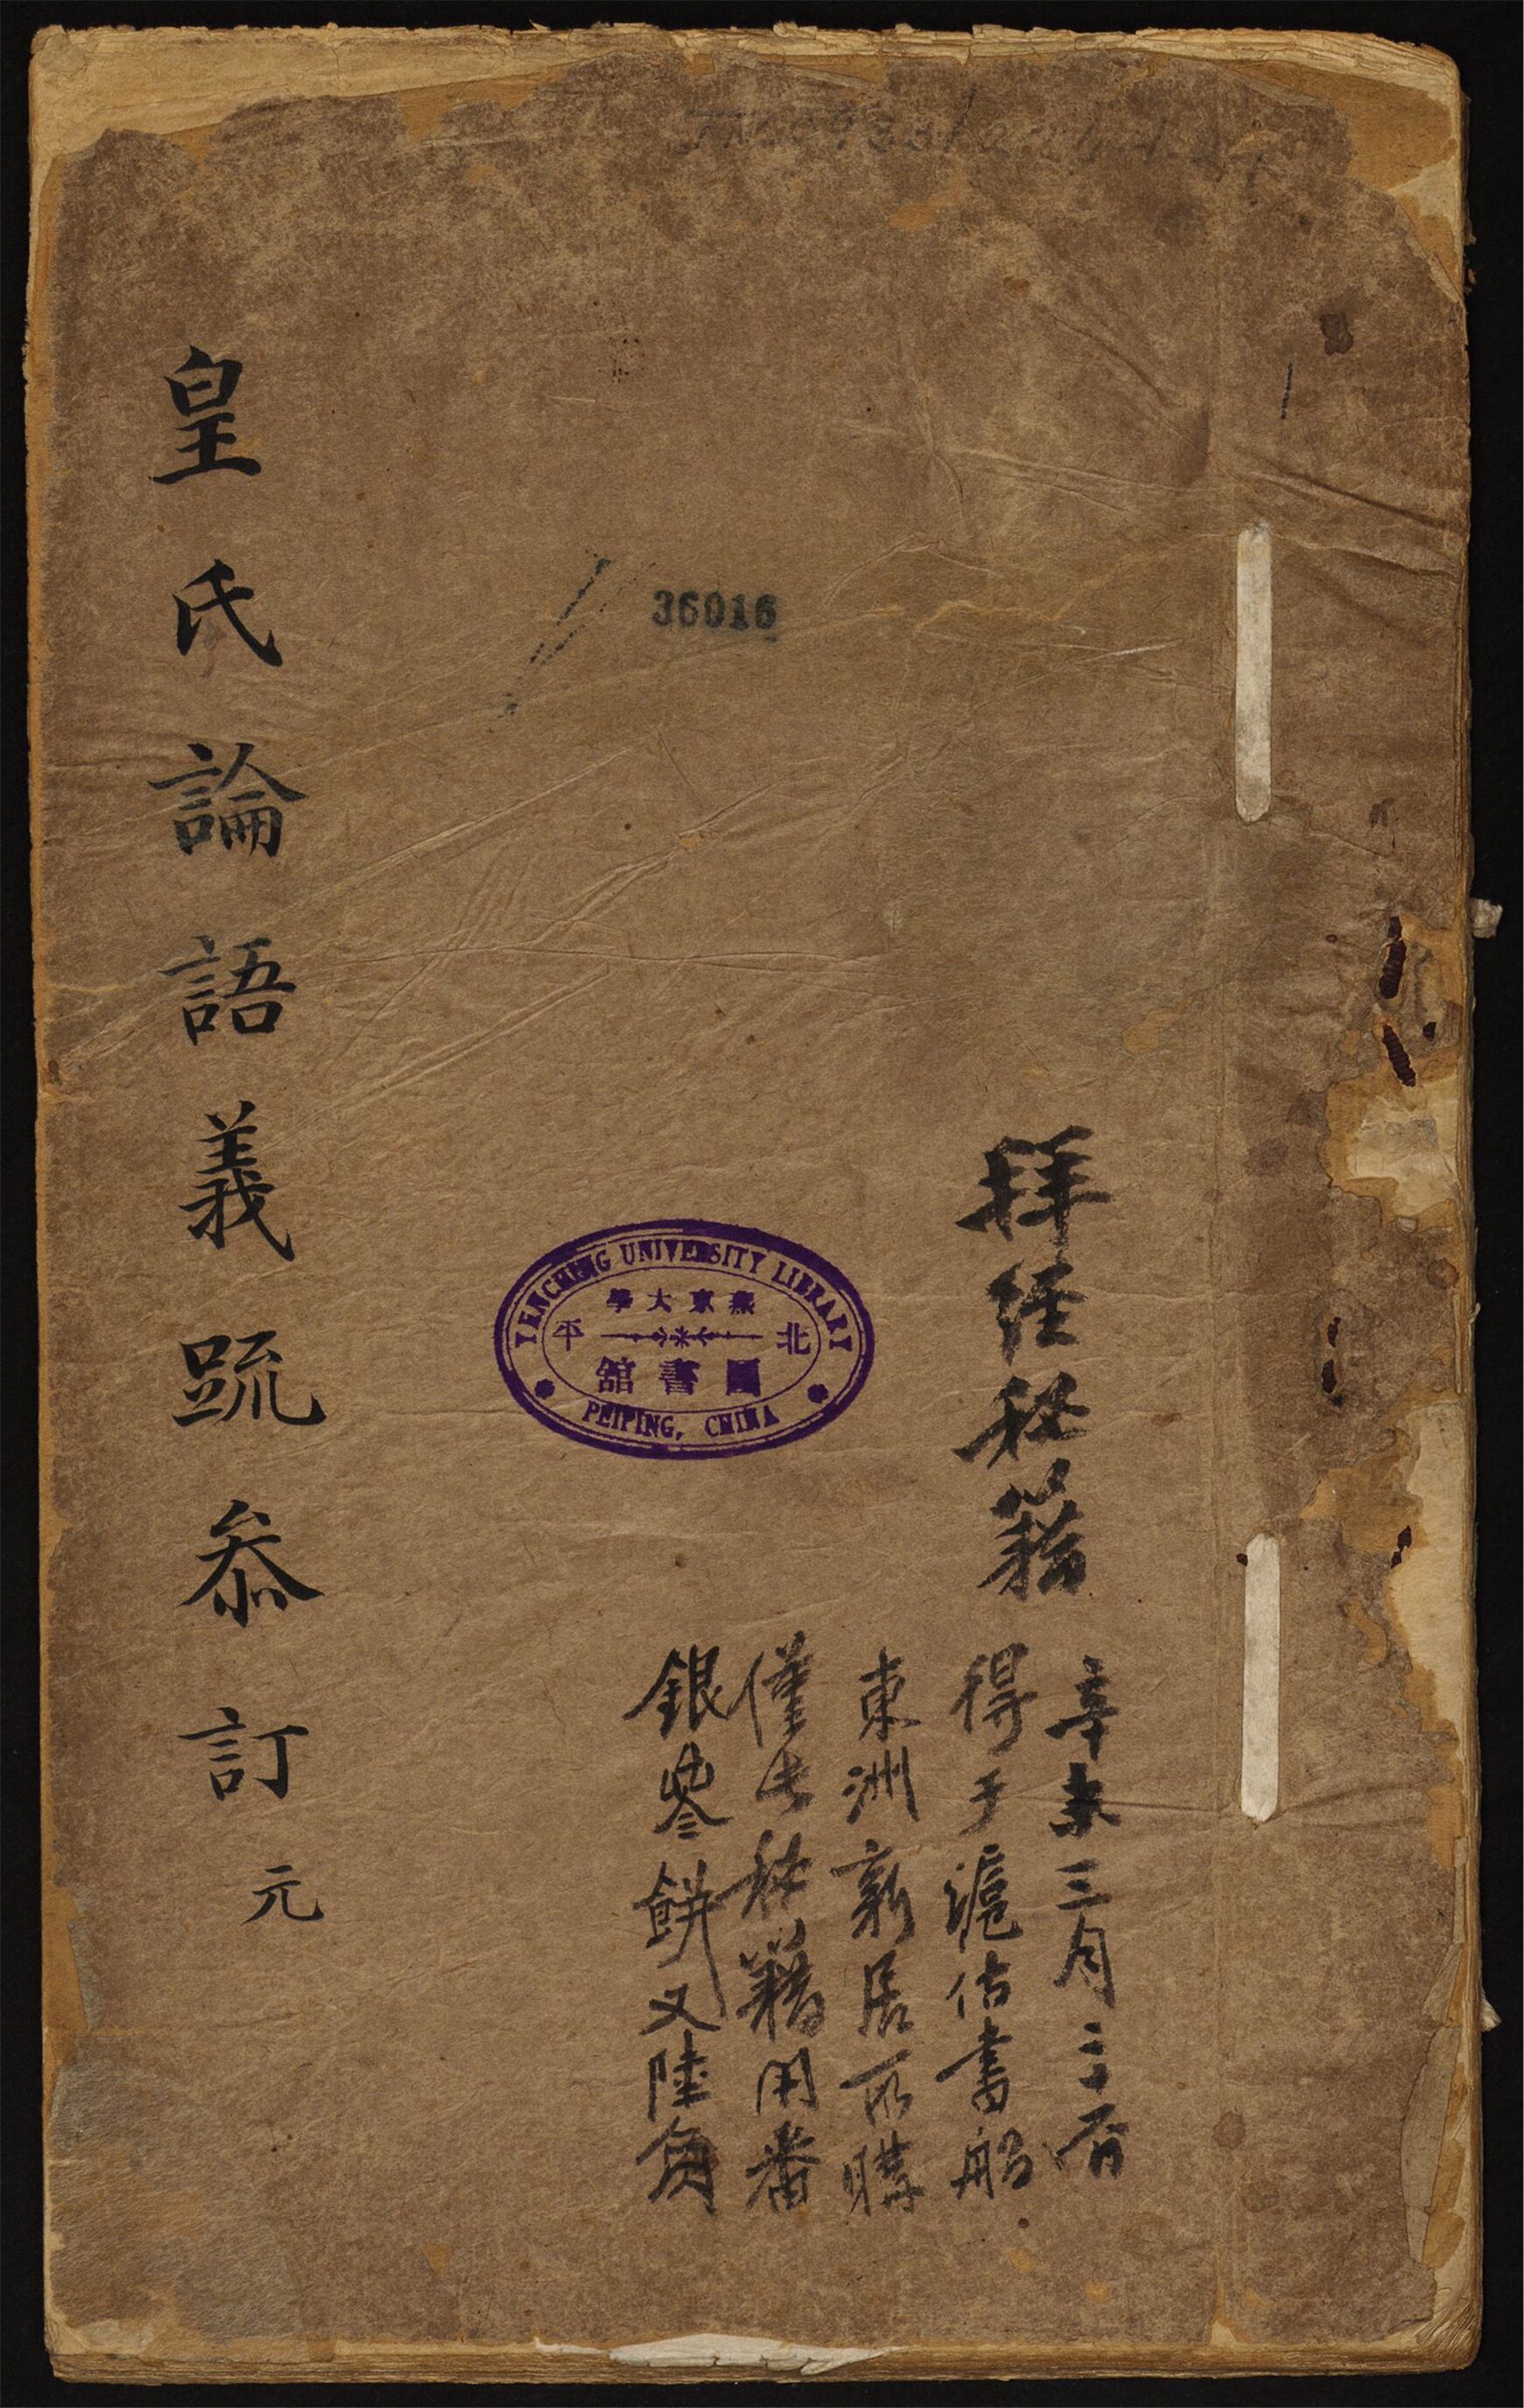 拜經秘籍
辛未三月二十一日
得于滬估書船
東洲新居所購
僅此秘籍用番
銀叄餅又陸角
36016
YENCHING UNIVERSITY LIBRARY
學大京燕
平 北
館書圖
PEIPING, CHINA
皇氏論語義疏叅訂 元